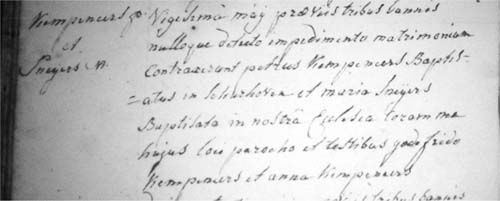 Kempeneers p. Vigesima maij praeviis tribus bannis
et nulloque detecto impedimento matrimonium
Sneijers m. Contraxerunt petrus Kempeneers Baptis-
=atus in Schurhoven et maria Sneijers
Baptisata in nostra Ecclesia coram me
hujus loci parocho et testibus godefrido
Kempeneers et anna Kempeneers
tribus bannis